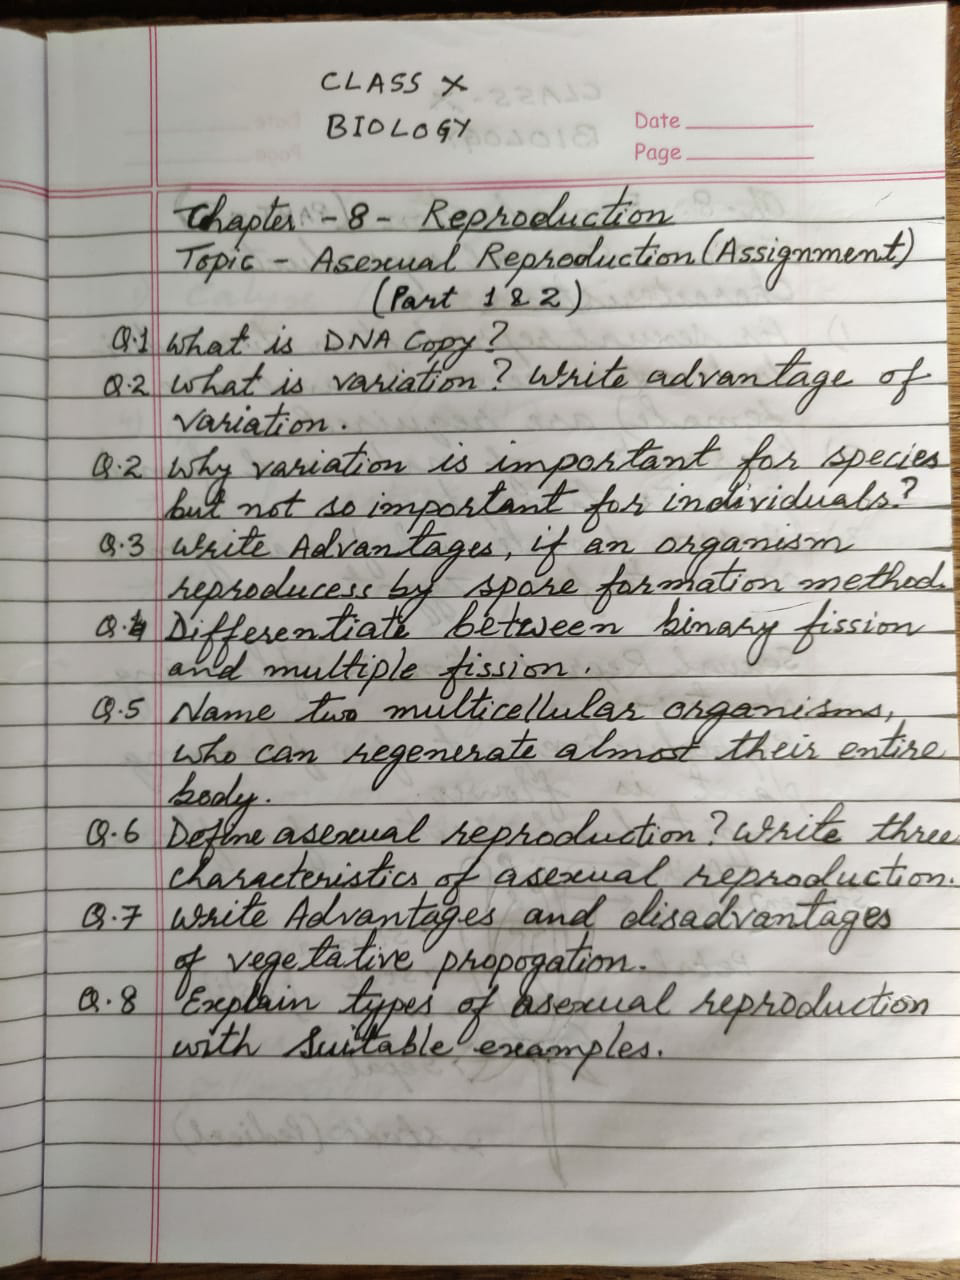 CLASS X
BIOLOGY
Date
Page
Chapter - 8 - Reproduction
Topic - Asexual Reproduction (Assignment)
(Part 1 & 2)
Q.1 What is DNA Copy?
Q.2 What is variation? Write advantage of
variation.
Q.2 Why variation is important for species
but not so important for individuals?
Q.3 Write Advantages, if an organism
reproducess by spore formation method.
Q.4 Differentiate between binary fission
and multiple fission.
Q.5 Name two multicellular organisms,
who can regenerate almost their entire
body.
Q.6 Define asexual reproduction? Write three
characteristics of asexual reproduction.
Q.7 Write Advantages and disadvantages
of vegetative propogation.
Q.8 Explain types of asexual reproduction
with suitable examples.